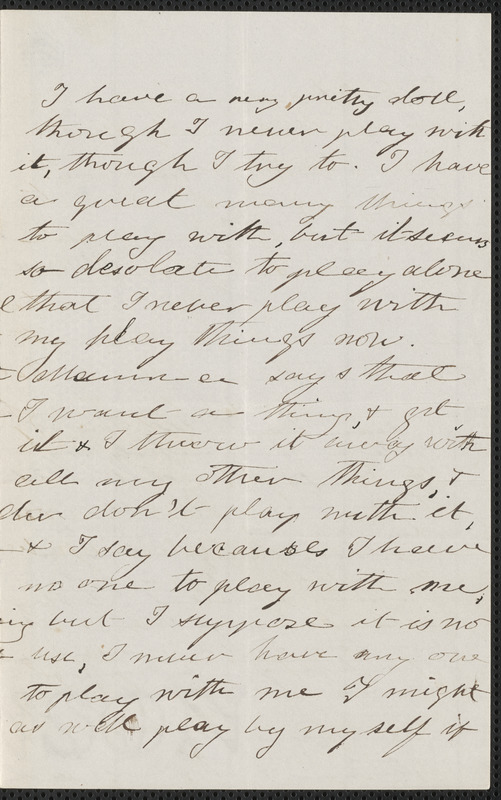 I have a very pretty doll,
though I never play with
it, though I try to. I have
a great many things
to play with, but it seems
so desolate to play alone
that I never play with
my play things now.
Mamma says that
I want a thing, & get
it & I throw it away with
all my other things, &
don't play with it,
& I say becauses I have
no one to play with me,
but I suppose it is no
use, I never have any one
to play with me I might
as well play by myself if